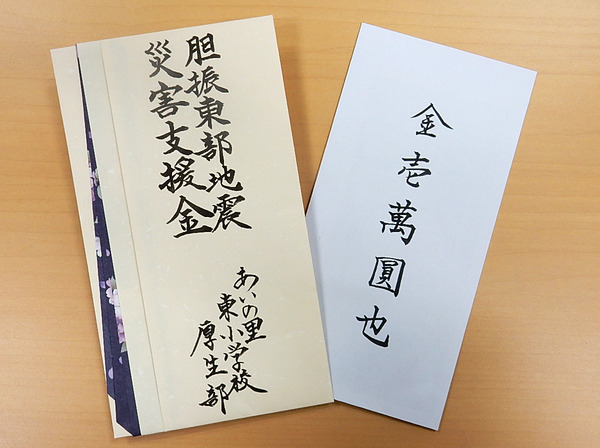 胆振東部地震
災害支援金
あいの里
東小学校
厚生部
金壱萬圓也